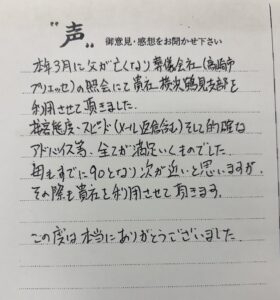 "声" 御意見・感想をお聞かせ下さい
本年3月に父が亡くなり葬儀会社(高崎市
プリエッセ)の照会にて貴社 横浜鶴見支部を
利用させて頂きました.
接客態度・スピード(メール返信含む)そして的確な
アドバイス等、全てが満足いくものでした.
母もすでに90となり次が近いと思いますが、
その際も貴社を利用させて頂きます.
この度は本当にありがとうございました.